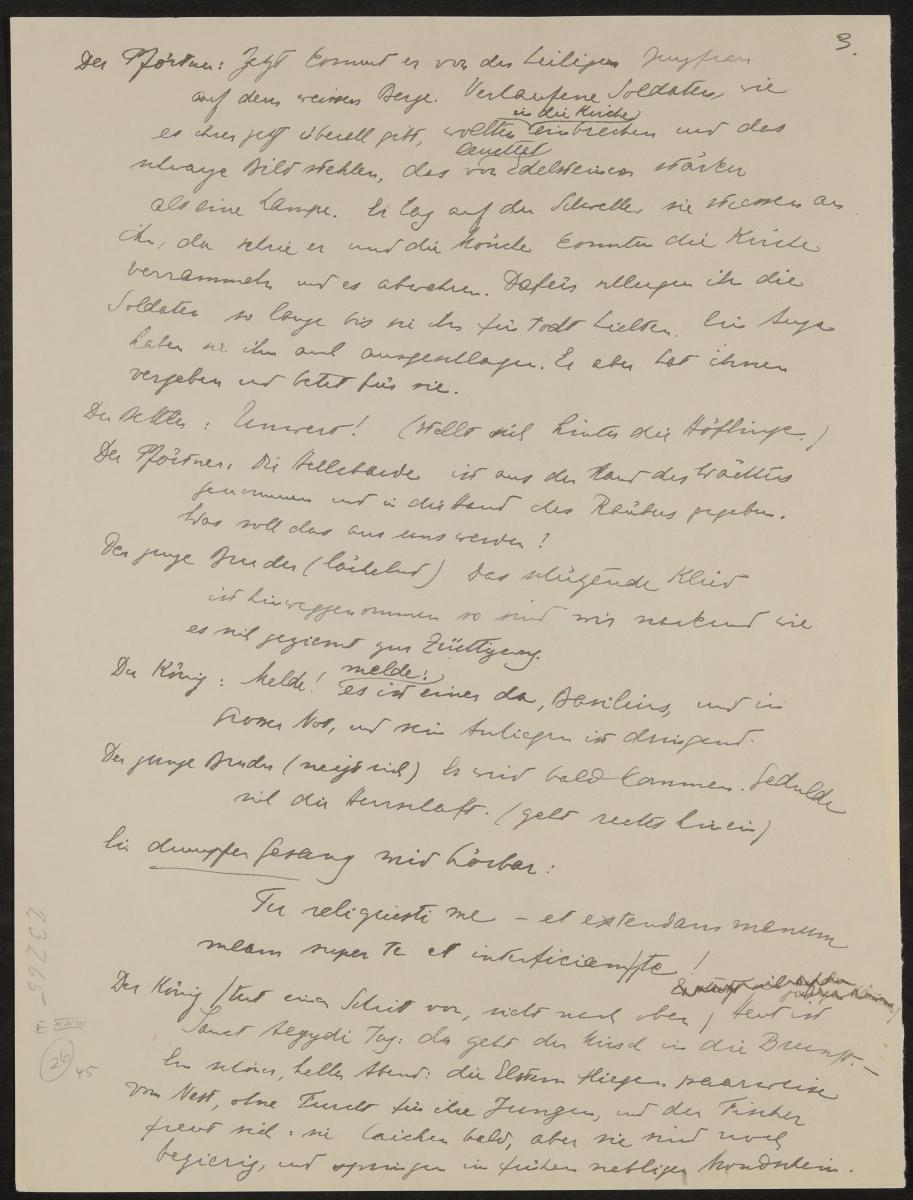 3.
Der Pförtner: Jetzt kommt er von der heiligen Jungfrau
auf dem weissen Berge. Verlaufene Soldaten, wie
in die Kirche
es ihrer jetzt überall gibt, wollten einbrechen und das
leuchtet
schwarze Bild stehlen, das von Edelsteinen stärker
als eine Lampe. Er lag auf der Schwelle, sie stiessen an
ihn, da schrie er und die Mönche konnten die Kirche
verrammeln und es abwehren. Dafür schlugen ihn die
Soldaten so lange bis sie ihn für todt hielten. Ein Auge
haben sie ihm auch ausgeschlagen. Er aber hat ihnen
vergeben und betet für sie.
Der Bettler: Unwert! (stellt sich hinter die Höflinge.)
Der Pförtner: Die Hellebarde ist aus der Hand des Wächters
genommen und in die Hand des Räubers gegeben.
Was soll das aus uns werden?
Der junge Bruder (lächelnd) Das schützende Kleid
ist hinweggenommen so sind wir nackend wie
es sich geziemt zur Züchtigung.
melde:
Der König: Melde! es ist einer da, Basilius, und in
grosser Not, und sein Anliegen ist dringend.
Der junge Bruder (neigt sich) Er wird bald kommen. Gedulde
sich die Herrschaft. (geht rechts hinein)
Ein dumpfer Gesang wird hörbar:
Tu reliquisti me – et extendam manum
meam super te et interficiam te!
Der König (tut einen Schritt vor, sieht nach oben) Heut ist
Sanct Aegydi Tag: da geht der Hirsch in die Brunft. –
Ein schöner, heller Abend: die Elstern fliegen paarweise
vom Nest, ohne Furcht für ihre Jungen, und der Fischer
freut sich: sie laichen bald, aber sie sind noch
begierig, und springen im frühen nebligen Mondschein.
23265
E XXIII
26
45